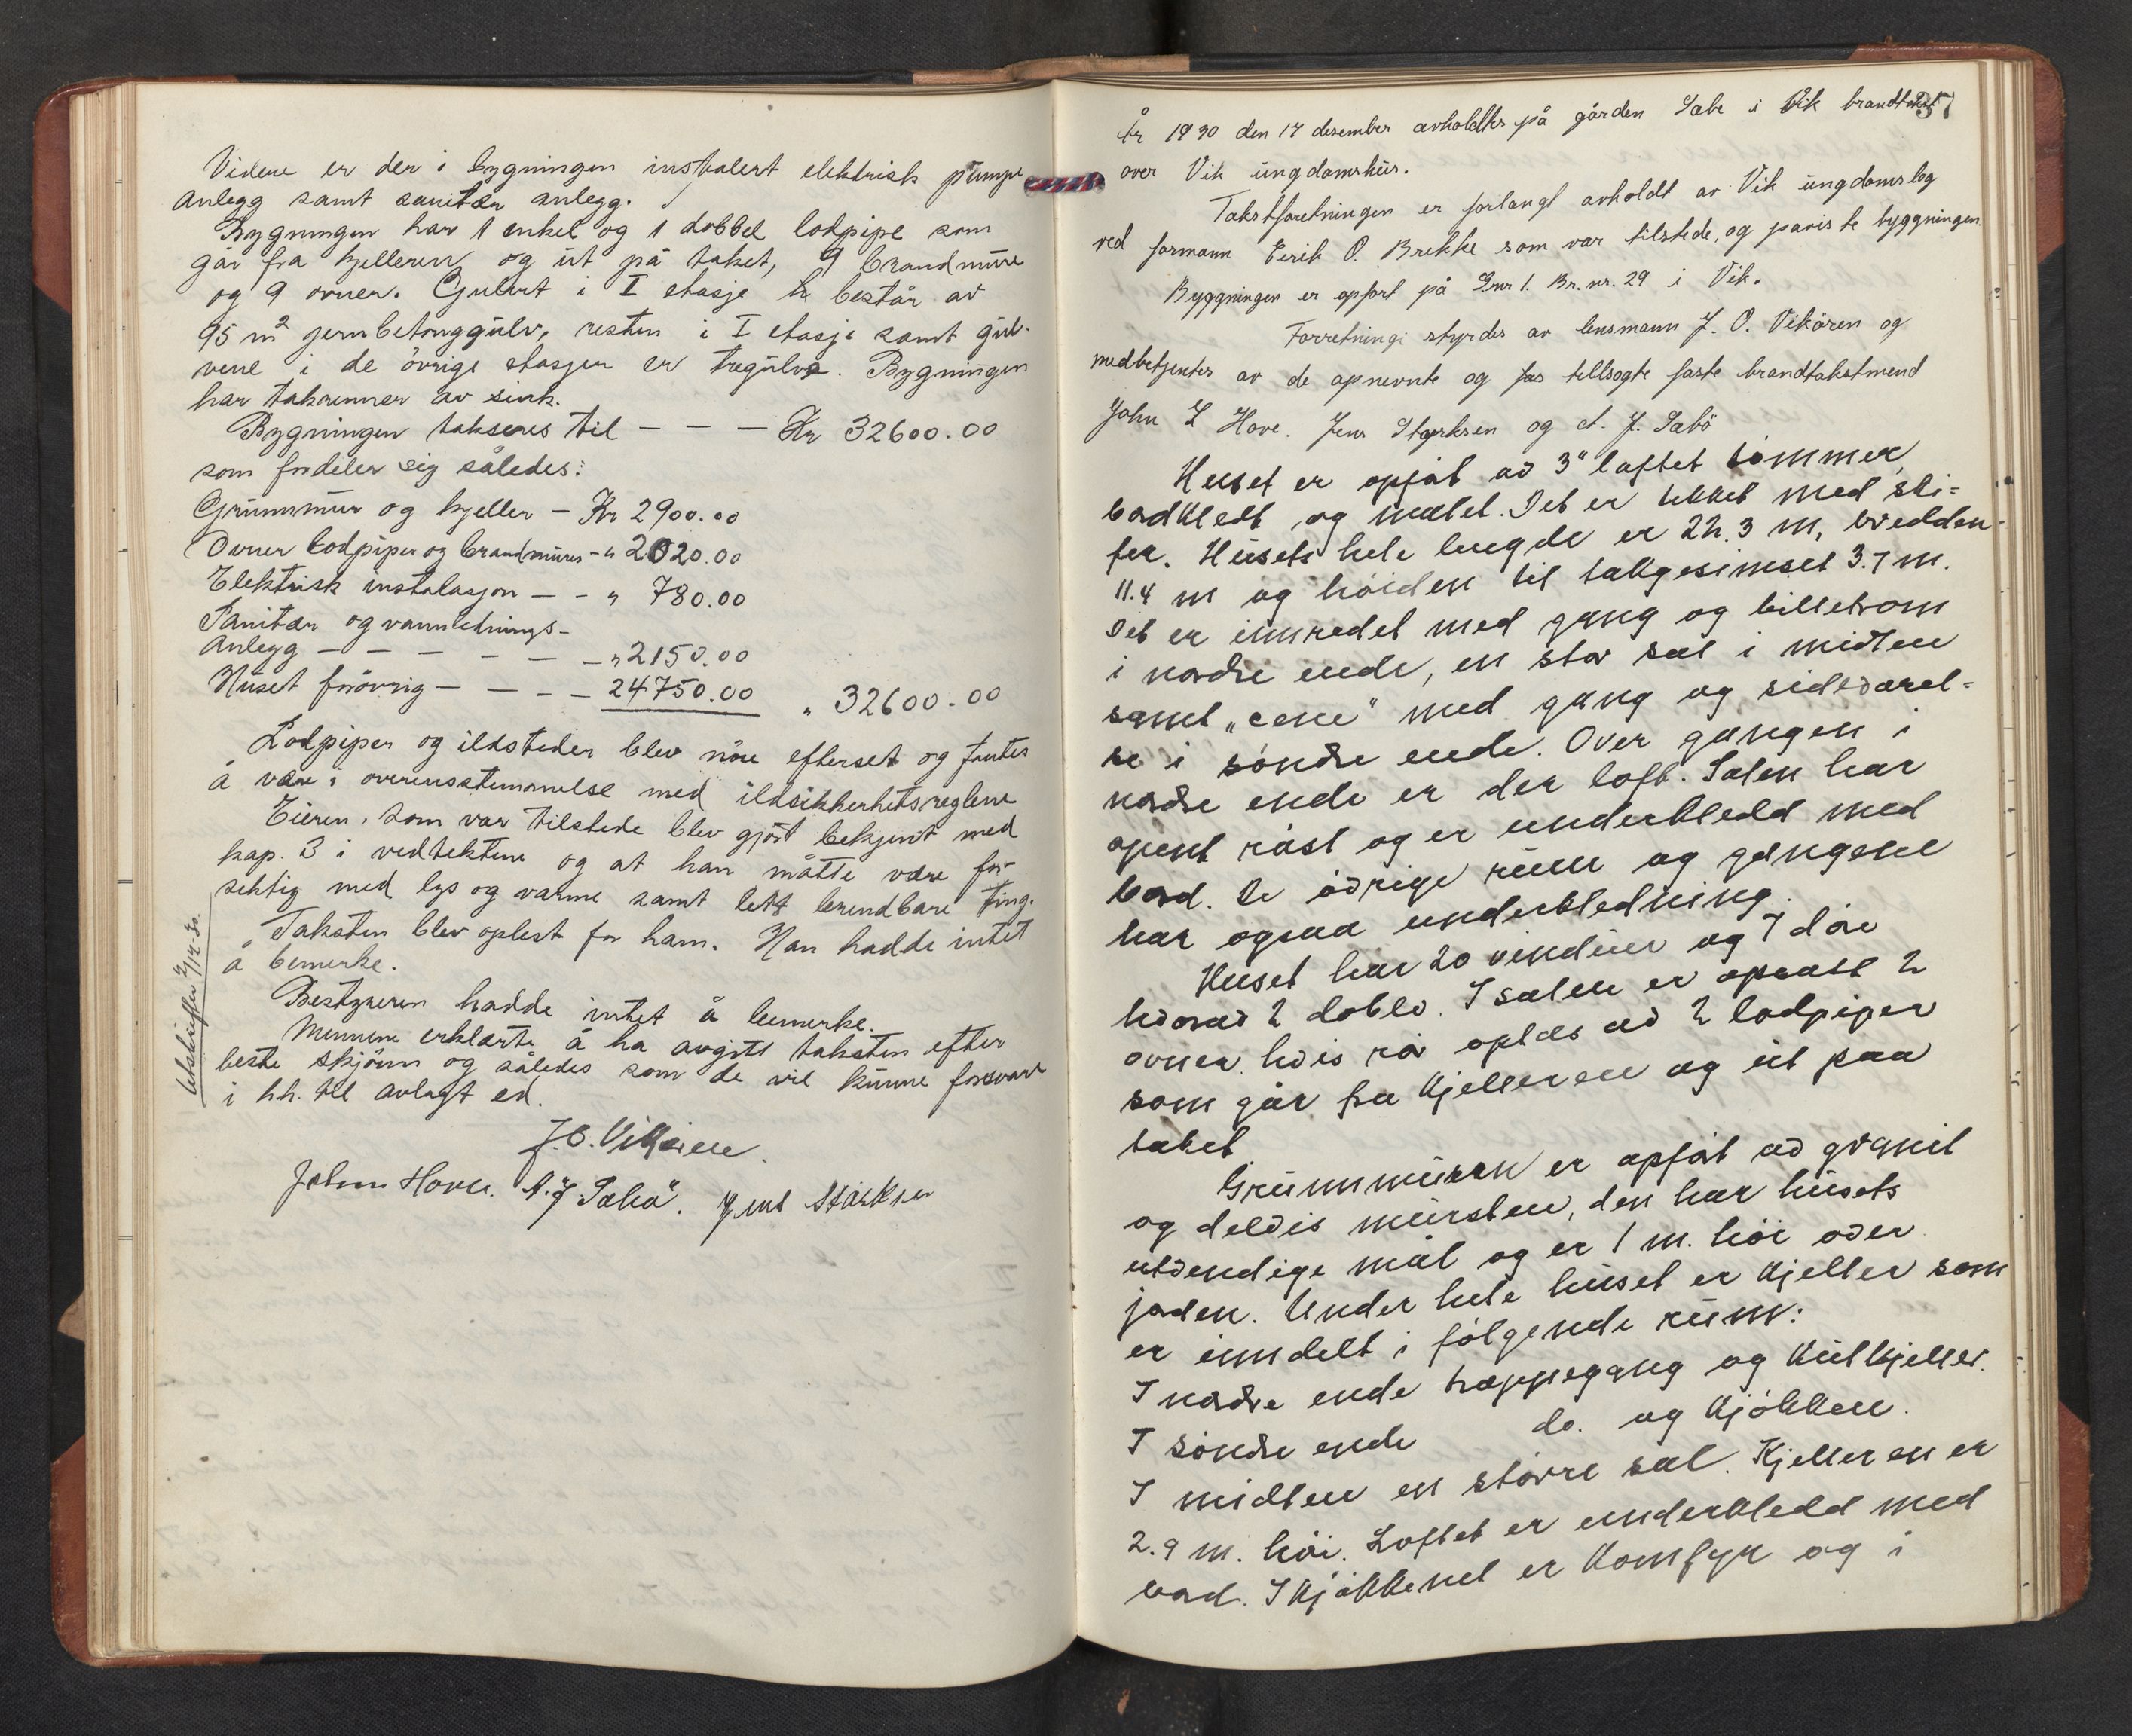 Videre er der i bygningen instalert elektrisk pumpe
anlegg samt sanitær anlegg.
Bygningen har 1 enkel og 1 dobbel lodpipe som
går fra kjelleren og ut på taket, 9 brandmure
og 9 ovner. Gulvet i I etasje består av
95 m² jernbetonggulv, resten i I etasje samt gul-
vene i de övrige etasjer er tregulve. Bygningen
har takrenner av sink.
Bygningen takseres til - - - Kr 32600.00
som fordeler sig således:
Grunnmur og kjeller - Kr 2900.00
Ovner lodpiper og brandmurer - " 2020.00
Elektrisk instalasjon - - " 780.00
Sanitær og vannlednings-
anlegg - - - - - - - " 2150.00
Huset forövrig - - - - 24750.00 " 32600.00
Lodpiper og ildsteder blev nöie efterset og fantes
å være i overensstemmelse med ildsikkerhetsreglene
Eieren, som var tilstede blev gjort bekjent med
kap. 3 i vedtektene og at han måtte være for-
siktig med lys og varme samt lett brendbare ting.
Taksten blev oplest for ham. Han hadde intet
å bemerke.
Bestyreren hadde intet å bemerke.
Mennene erklærte å ha avgitt taksten efter
beste skjönn og således som de vil kunne forsvare
i h.h. til avlagt ed.
J.O. Vikören.
John Hove. A. J. Sabö. Jens Stærksen
Utskrift 2/12-30.
37
År 1930 den 17 desember avholdtes på gården Sabe i Vik brandtakst
over Vik ungdomshus.
Takstforretningen er forlangt avholdt av Vik ungdomslag
ved formann Eirik O. Brekke som var tilstede, og paviste byggningen.
Byggningen er opfört på Gnr 1. Br.nr. 29 i Vik.
Forretningi styrdes av lensmann J. O. Vikören og
medbetjentes av de opnevnte og tillsagte faste brandtakstmend
John L Hove. Jens Stærksen og A. J. Sabö
Huset er opfört av 3" laftet tömmer,
bordkledt og malet. Det er tekket med ski-
fer. Husets hele lengde er 22.3 m, bredden
11.4 m og höiden til takgesimset 3.7 m.
Det er innredet med gang og billetrom
i nordre ende, en stor sal i midten
samt "cene" med gang og sideværel-
se i söndre ende. Over gangen i
nordre ende er der loft. Salen har
opent röst og er underkledd med
bord. De övrige rum og gangene
har ogsaa underkledning.
Huset har 20 vinduer og 7 döre
hvorav 2 doble. I salen er opsatt 2
ovner. hvis rör optas av 2 lodpiper
som går fra kjelleren og ut paa
taket
Grunnmuren er opfört av granit
og delvis mursten, den har husets
utvendige mål og er 1 m. höi over
jorden. Under hele huset er kjeller som
er inndelt i fölgende rum:
I nordre ende trappegang og kulkjeller.
I söndre ende do. og kjökken.
I midten en större sal. Kjelleren er
2.9 m. höi. Loftet er underkledd med
bord. I kjökkenet er komfyr og i